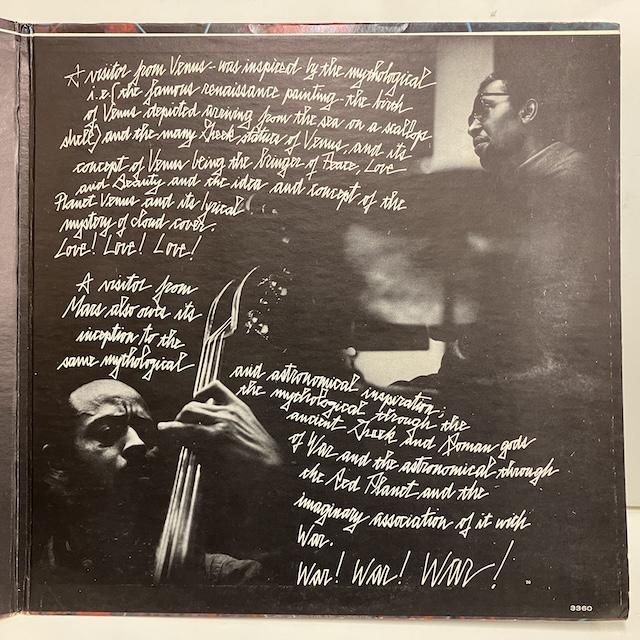 A visitor from Venus - was inspired by the mythological
i.e. (the famous renaissance painting the birth
of Venus depicted arriving from the sea on a scallop
shell) and the many Greek statues of Venus, and its
concept of Venus being the bringer of Peace, Love
and Beauty and the idea and concept of the
Planet Venus and its lyrical
mystery of cloud cover.
Love! Love! Love!
A visitor from
Mars also owes its
inception to the
same mythological
and astronomical inspiration;
the mythological through the
ancient Greek and Roman gods
of War and the astronomical through
the Red Planet and the
imaginary association of it with
War.
War! War! War!
3360